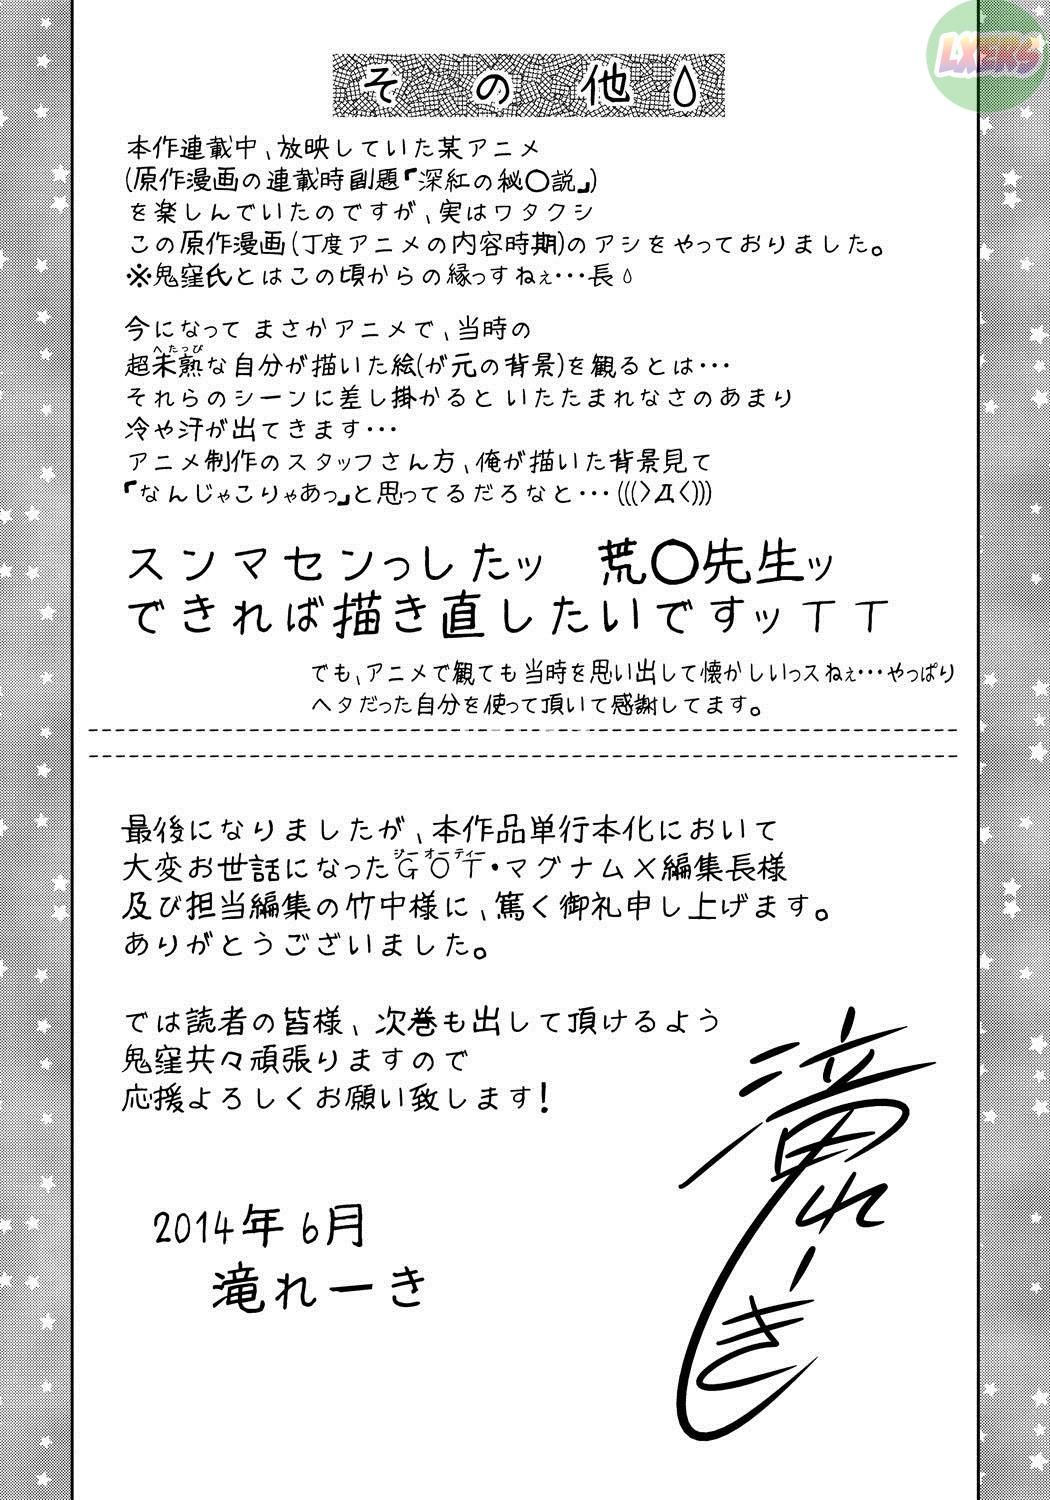 LXERS
その他
本作連載中、放映していた某アニメ
(原作漫画の連載時副題『深紅の秘〇説』)
を楽しんでいたのですが、実はワタクシ
この原作漫画(丁度アニメの内容時期)のアシをやっておりました。
※鬼窪氏とはこの頃からの縁っすねぇ…長
今になって まさかアニメで、当時の
へたっぴ
超未熟な自分が描いた絵(が元の背景)を観るとは…
それらのシーンに差し掛かると いたたまれなさのあまり
冷や汗が出てきます…
アニメ制作のスタッフさん方、俺が描いた背景見て
『なんじゃこりゃあっ』と思ってるだろなと…(((>Д<)))
スンマセンっしたッ 荒〇先生ッ
できれば描き直したいですッTT
でも、アニメで観ても当時を思い出して懐かしいっスねぇ…やっぱり
ヘタだった自分を使って頂いて感謝してます。
最後になりましたが、本作品単行本化において
ジーオーティー
大変お世話になったGOT・マグナムX編集長様
及び担当編集の竹中様に、篤く御礼申し上げます。
ありがとうございました。
では読者の皆様、次巻も出して頂けるよう
鬼窪共々頑張りますので
応援よろしくお願い致します!
2014年6月
滝れーき
滝れーき